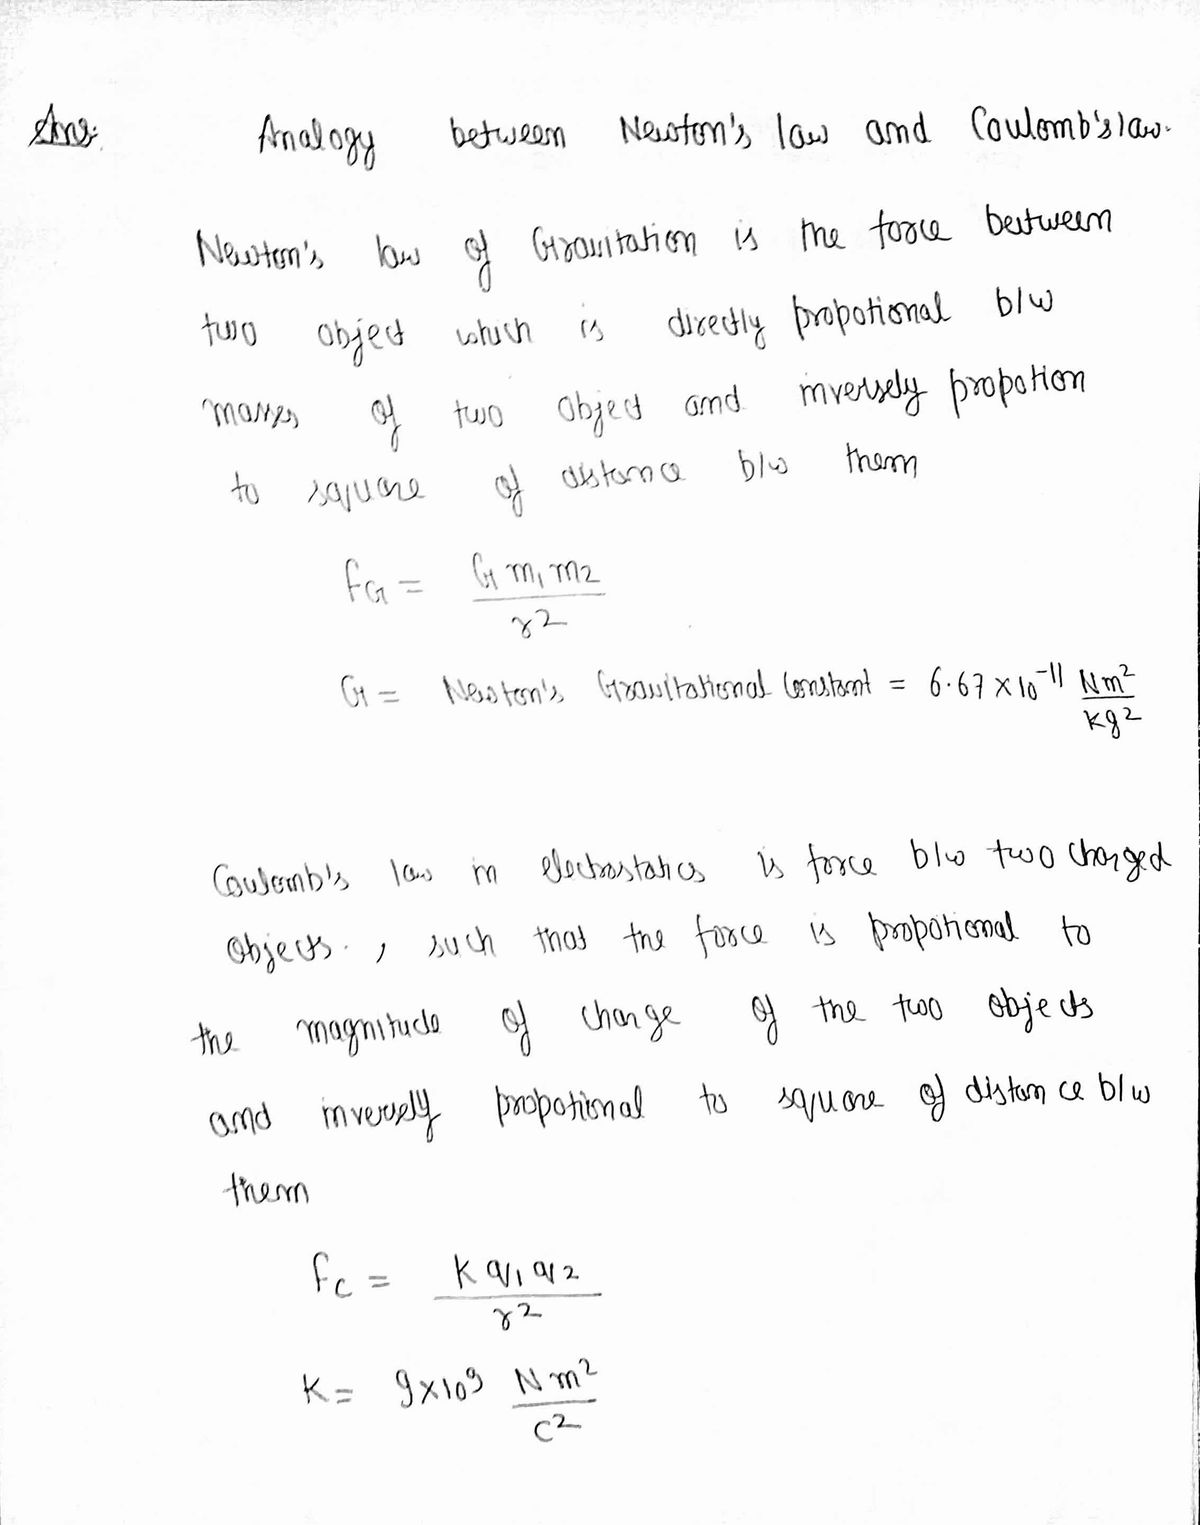 Ans: Analogy between Newton's law and Coulomb's law.
Newton's law of Gravitation is the force between
two object which is directly propotional b/w
masses of two object and inversely propotion
to square of distance b/w them
FG = G m1 m2 / r2
G = Newton's Gravitational Constant = 6.67 × 10^-11 Nm2 / kg2
Coulomb's law in electrostatics is force b/w two charged
objects. , such that the force is propotional to
the magnitude of charge of the two objects
and inversely propotional to square of distance b/w
them
Fc = K q1 q2 / r2
K = 9×10^9 Nm2 / C2